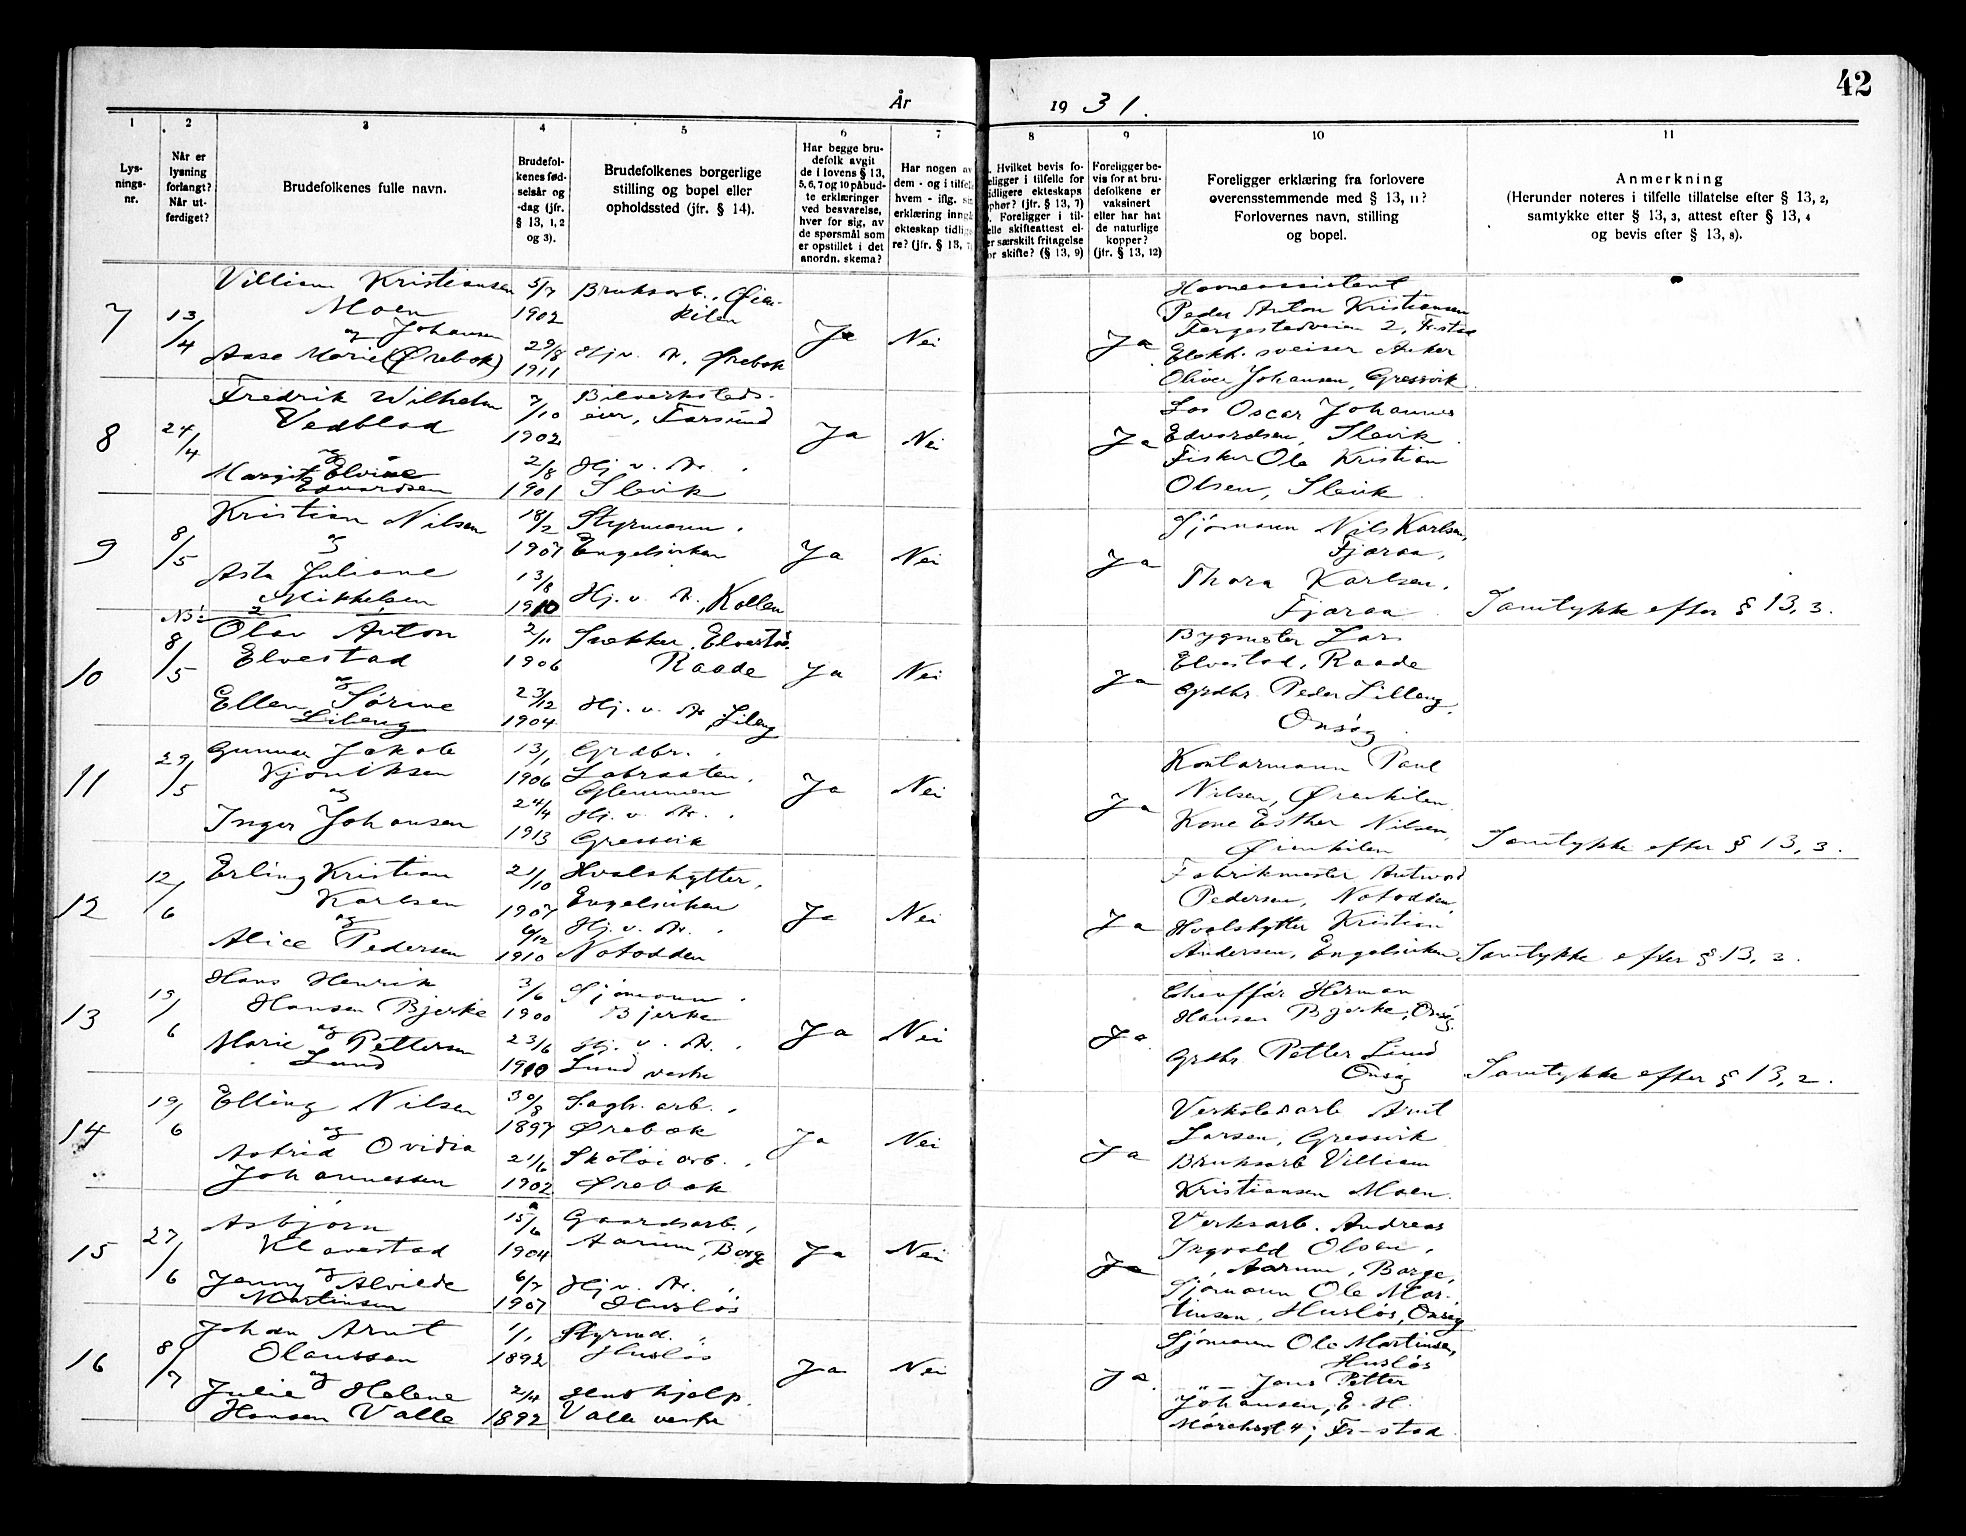 42
År 1931.
1
Lysnings-nr.
2
Når er lysning forlangt? Når utferdiget?
3
Brudefolkenes fulle navn.
4
Brudefolkenes fødselsår og -dag (jfr. § 13, 1, 2 og 3).
5
Brudefolkenes borgerlige stilling og bopel eller opholdssted (jfr. § 14).
6
Har begge brudefolk avgit de i lovens § 13, 5, 6, 7 og 10 påbudte erklæringer ved besvarelse, hver for sig, av de spørsmål som er opstillet i det anordn. skema?
7
Har nogen av dem - og i tilfelle hvem - iflg.
erklæring inngått ekteskap tidligere? (jfr. § 13, 7)
8
Hvilket bevis foreligger i tilfelle for tidligere ekteskaps ophør? (jfr. § 13, 7)
Foreligger i tilfelle skifteattest eller særskilt fritagelse for skifte? (§ 13, 9)
9
Foreligger bevis for at brudefolkene er vaksinert eller har hat de naturlige kopper? (jfr. § 13, 12)
10
Foreligger erklæring fra forlovere overensstemmende med § 13, 11? Forlovernes navn, stilling og bopel.
11
Anmerkning
(Herunder noteres i tilfelle tillatelse efter § 13, 2, samtykke efter § 13, 3, attest efter § 13, 4 og bevis efter § 13, 8).
7
13/4
Villiam Kristiansen
Moen
og Johansen
Aase Marie (Ørebæk)
5/7
1902
29/8
1911
Bruksarb., Øien-
kilen
Hj. v. Ar. Ørebæk
Ja
Nei
Ja
Havneassistent
Peder Anton Kristiansen
Torgestadveien 2, F-stad
Elekt. sveiser Anker
Oliver Johansen, Gressvik
8
24/4
Fredrik Wilhelm
Vedblad
og
Margit Elvine
Edvardsen
7/10
1902
2/8
1901
Bilverksteds-
eier, Farsund
Hj. v. Ar.
Slevik
Ja
Nei
Ja
Los Oscar Johannes
Edvardsen, Slevik.
Fisker Ole Kristian
Olsen, Slevik.
9
8/5
Kristian Nilsen
og
Asta Juliane
Mikkelsen
18/2
1907
13/8
1910
Styrmann.
Engelsviken
Hj. v. Ar., Kollen
Ja
Nei
Ja
Sjømann Nils Karlsen,
Fjæraa,
Thora Karlsen,
Fjæraa.
Samtykke efter § 13, 3.
10
NB!
8/5
2 1
Olav Anton
Elvestad
og
Ellen Sørine
Lileng
2/11
1906
23/12
1904
Snekker, Elvestad
Raade
Hj. v. Ar. Lileng
Ja
Nei
Ja
Bygmester Lars
Elvestad, Raade
Grdbr. Peder Lilleng,
Onsøy.
11
29/5
Gunnar Jakob
Kjøniksen
og
Inger Johansen
13/1
1906
24/4
1913
Grdbr.
Labraaten,
Glemmen
Hj. v. Ar.
Gressvik
Ja
Nei
Ja
Kontormann Paul
Nilsen, Øienkilen
Kone Esther Nilsen,
Øienkilen
Samtykke efter § 13, 3.
12
12/6
Erling Kristian
Karlsen
og
Alice Pedersen
21/10
1907
6/12
1910
Hvalskytter,
Engelsviken
Hj. v. Ar.
Notodden
Ja
Nei
Ja
Fabrikmester
Pedersen, Notodden
Hvalskytter Kristian
Andersen, Engelsviken.
Samtykke efter § 13, 3.
13
19/6
Hans Henrik
Hansen Bjerke
og
Marie Pettersen
Lund
3/6
1900
23/6
1910
Sjømann.
Bjerke
Hj. v. Ar.
Lund vestre
Ja
Nei
Ja
Chauffør Herman
Hansen Bjerke, Onsøy
Grdbr. Petter Lund
Onsøy
Samtykke efter § 13, 2.
14
19/6
Elling Nilsen
og
Astrid Ovidia
Johannessen
30/8
1897
21/6
1902
Sagbr. arb.,
Ørebæk
Skotøiarb.,
Ørebæk
Ja
Nei
Ja
Verkstedarb Arnt
Larsen, Gressvik
Bruksarb Villiam
Kristiansen Moen.
15
27/6
Asbjørn
Klavestad
og
Jenny Alvilde
Martinsen
15/6
1904
6/7
1907
Gaardsarb.,
Aarum, Borge
Hj. v. Ar.
Husløs
Ja
Nei
Ja
Verksarb. Andreas
Ingvald Olsen,
Aarum, Borge,
Sjømann Ole Mar-
tinsen, Husløs, Onsøy
16
8/7
Johan Arnt
Olaussen
og
Julie Helene
Hansen Valle
1/1
1892
2/4
1892
Styrmd.
Husløs
Hushjelp.
Valle vestre
Ja
Nei
Ja.
Sjømann Ole Martinsen,
Husløs
—"— Jens Petter
Johansen, E. H.
4, Fr-stad